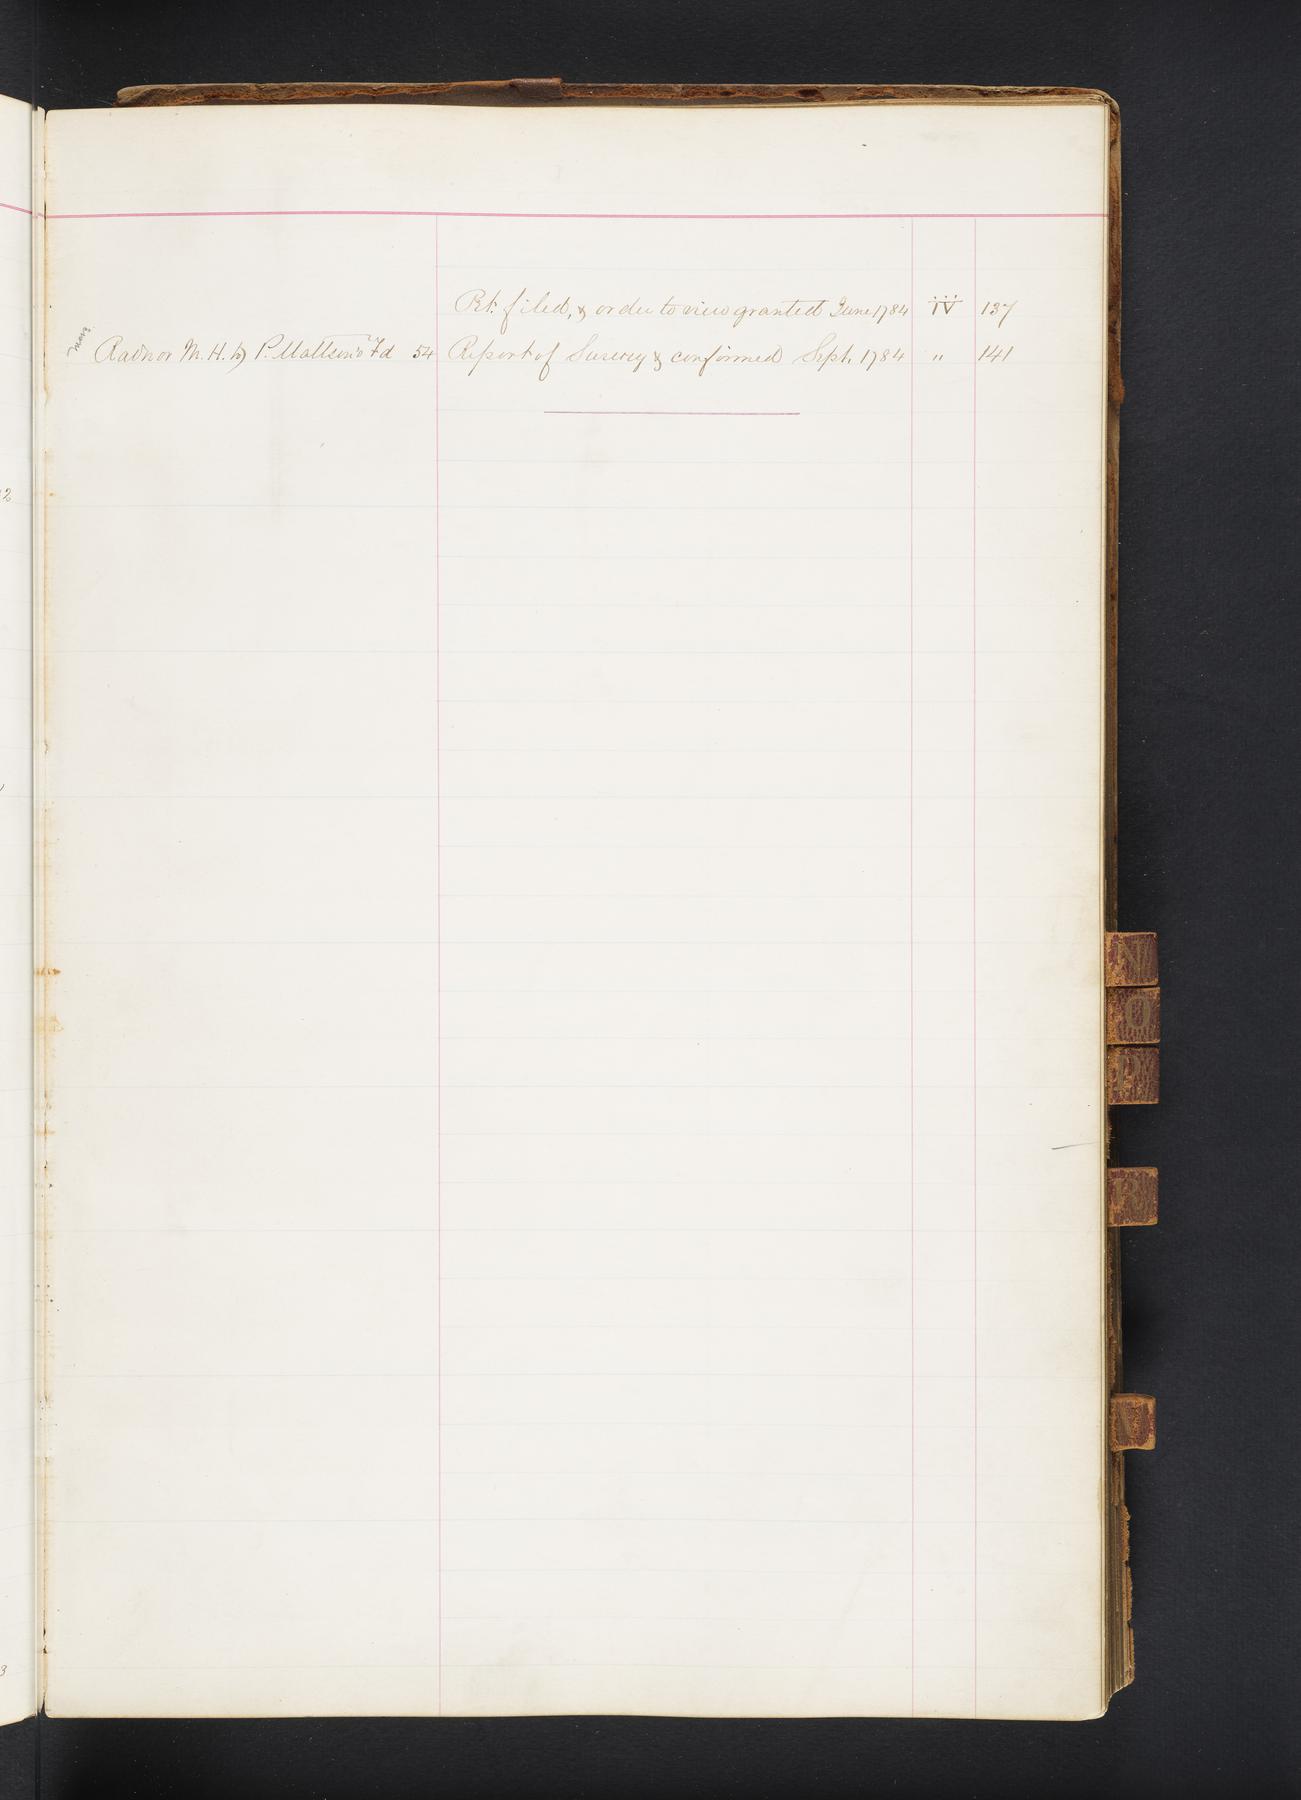 Pet. filed, & order to view granted June 1784 IV 137
Radnor M. H. to P. Mattson's Fd 54 Report of Survey & confirmed Sept. 1784 " 141
2
3
N
O
P
R
V